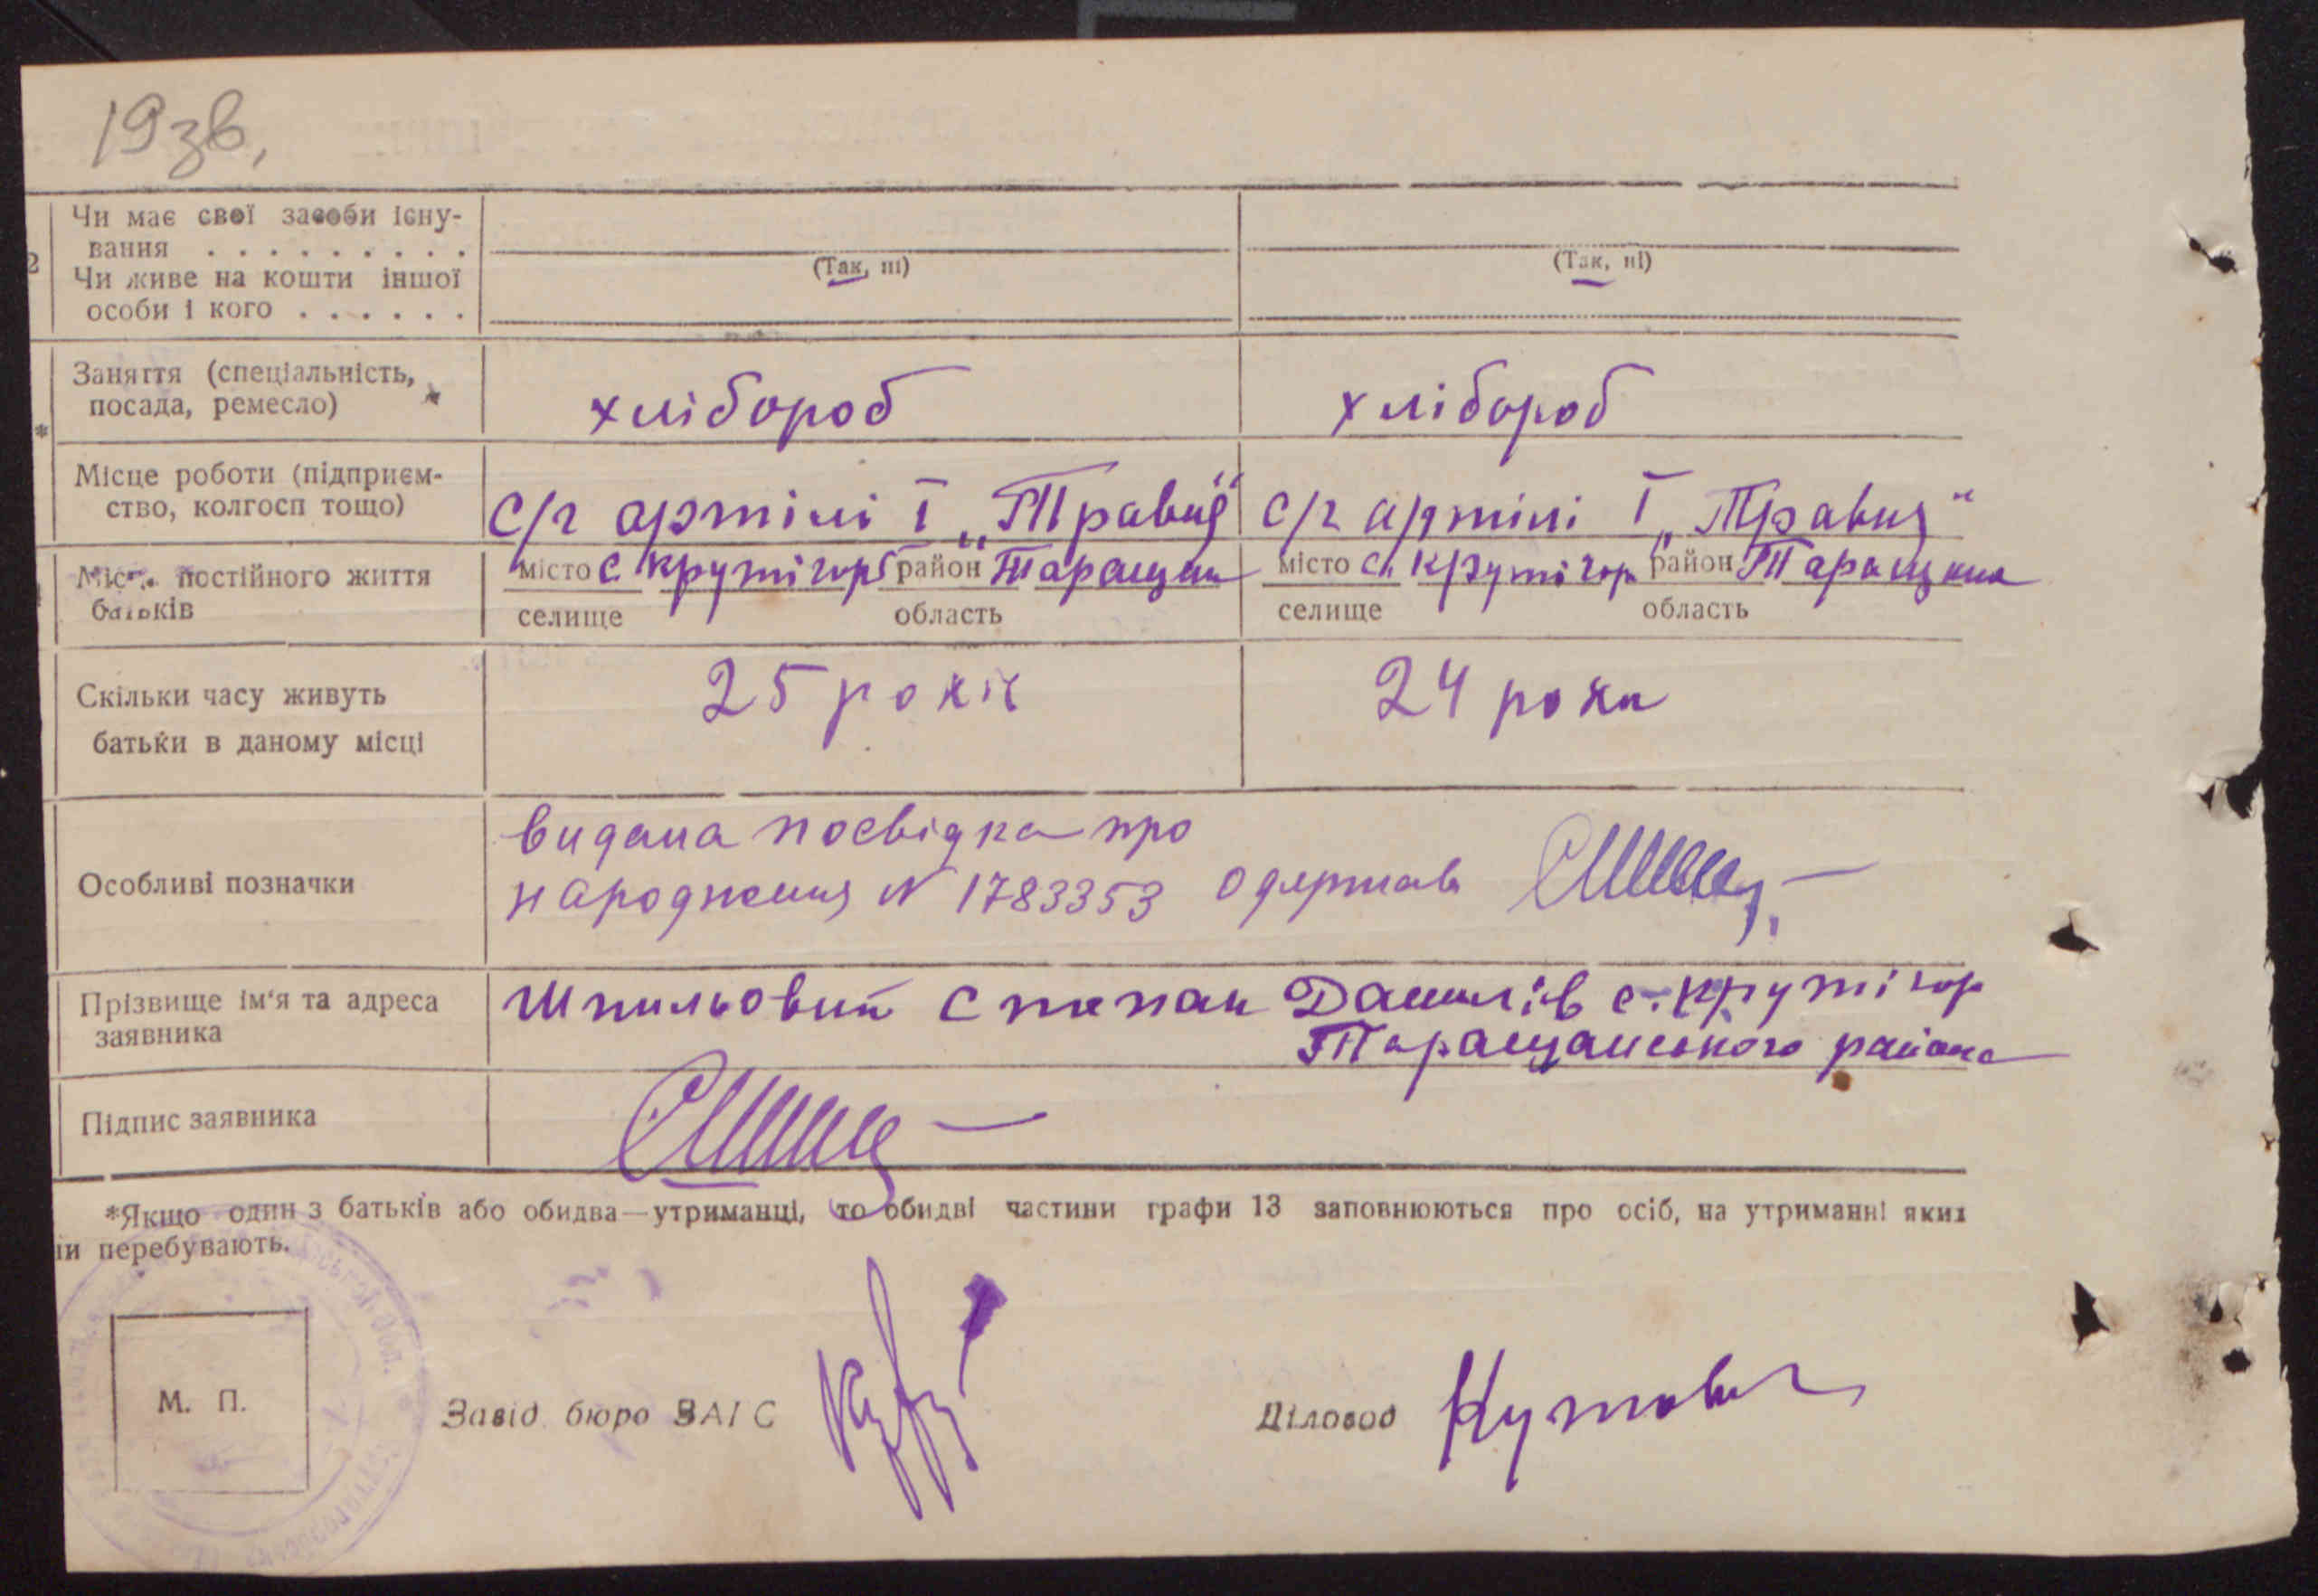 19зв,
Чи має свої засоби існу-
вання . . . . . . . . .
(Так, ні) (Так, ні)
Чи живе на кошти іншої
особи і кого . . . . . .
Заняття (спеціальність,
посада, ремесло)
хлібороб хлібороб
* Місце роботи (підприєм-
ство, колгосп тощо)
с/г артілі І „Травня“ с/г артілі І „Травня“
Місц. постійного життя
батьків
місто с. Крутігор район Таращан місто с. Крутігор район Таращана
селище область селище область
Скільки часу живуть
батьки в даному місці
25 років 24 роки
Особливі позначки
видана посвідка про
народження N 1783353 одержав
Прізвище ім'я та адреса
заявника
Шпильовий Степан Данилів с. Крутігор
Таращанського района
Підпис заявника
*Якщо один з батьків або обидва—утриманці, то обидві частини графи 13 заповнюються про осіб, на утриманні яких
ни перебувають.
М. П.
Завід. бюро ЗАГС
Діловод Кутови